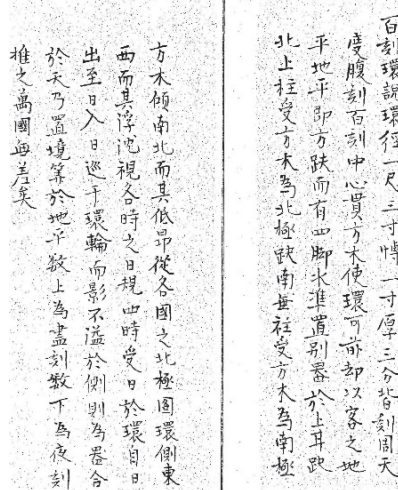 百刻環說環徑一尺三寸博一寸厚三分背刻周天
度腹刻百刻中心貫方木使環可前却以客之地
平地平即方趺而有四脚水準置別器於上耳趺
北上柱受方木為北極趺南無柱受方木為南極
方木傾南北而其低昂從各國之北極圖環側東
西而其浮沈視各時之日規四時受日於環自日
出至日入日巡于環輪而影不溢於側則為器合
於天乃置境等於地平數上為晝刻數下為夜刻
推之萬國毎差矣